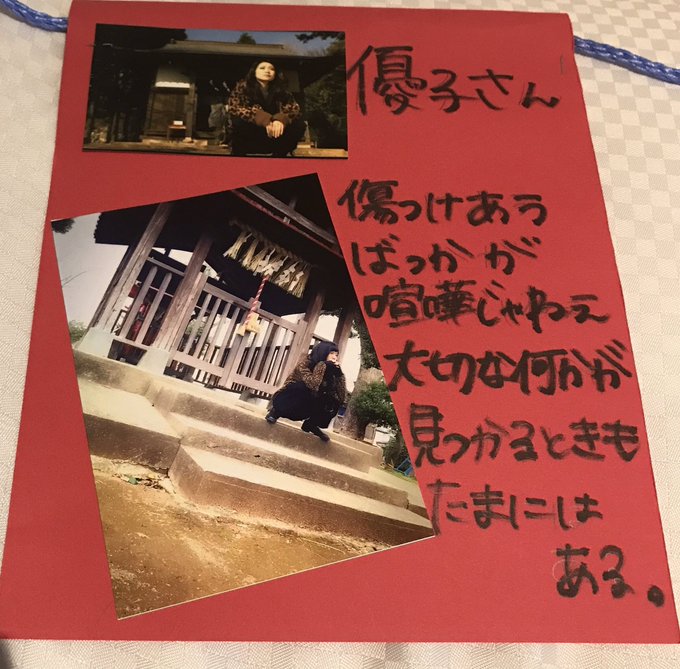 優子さん
傷つけあう
ばっかが
喧嘩じゃねえ
大切な何かが
見つかるときも
たまには
ある。